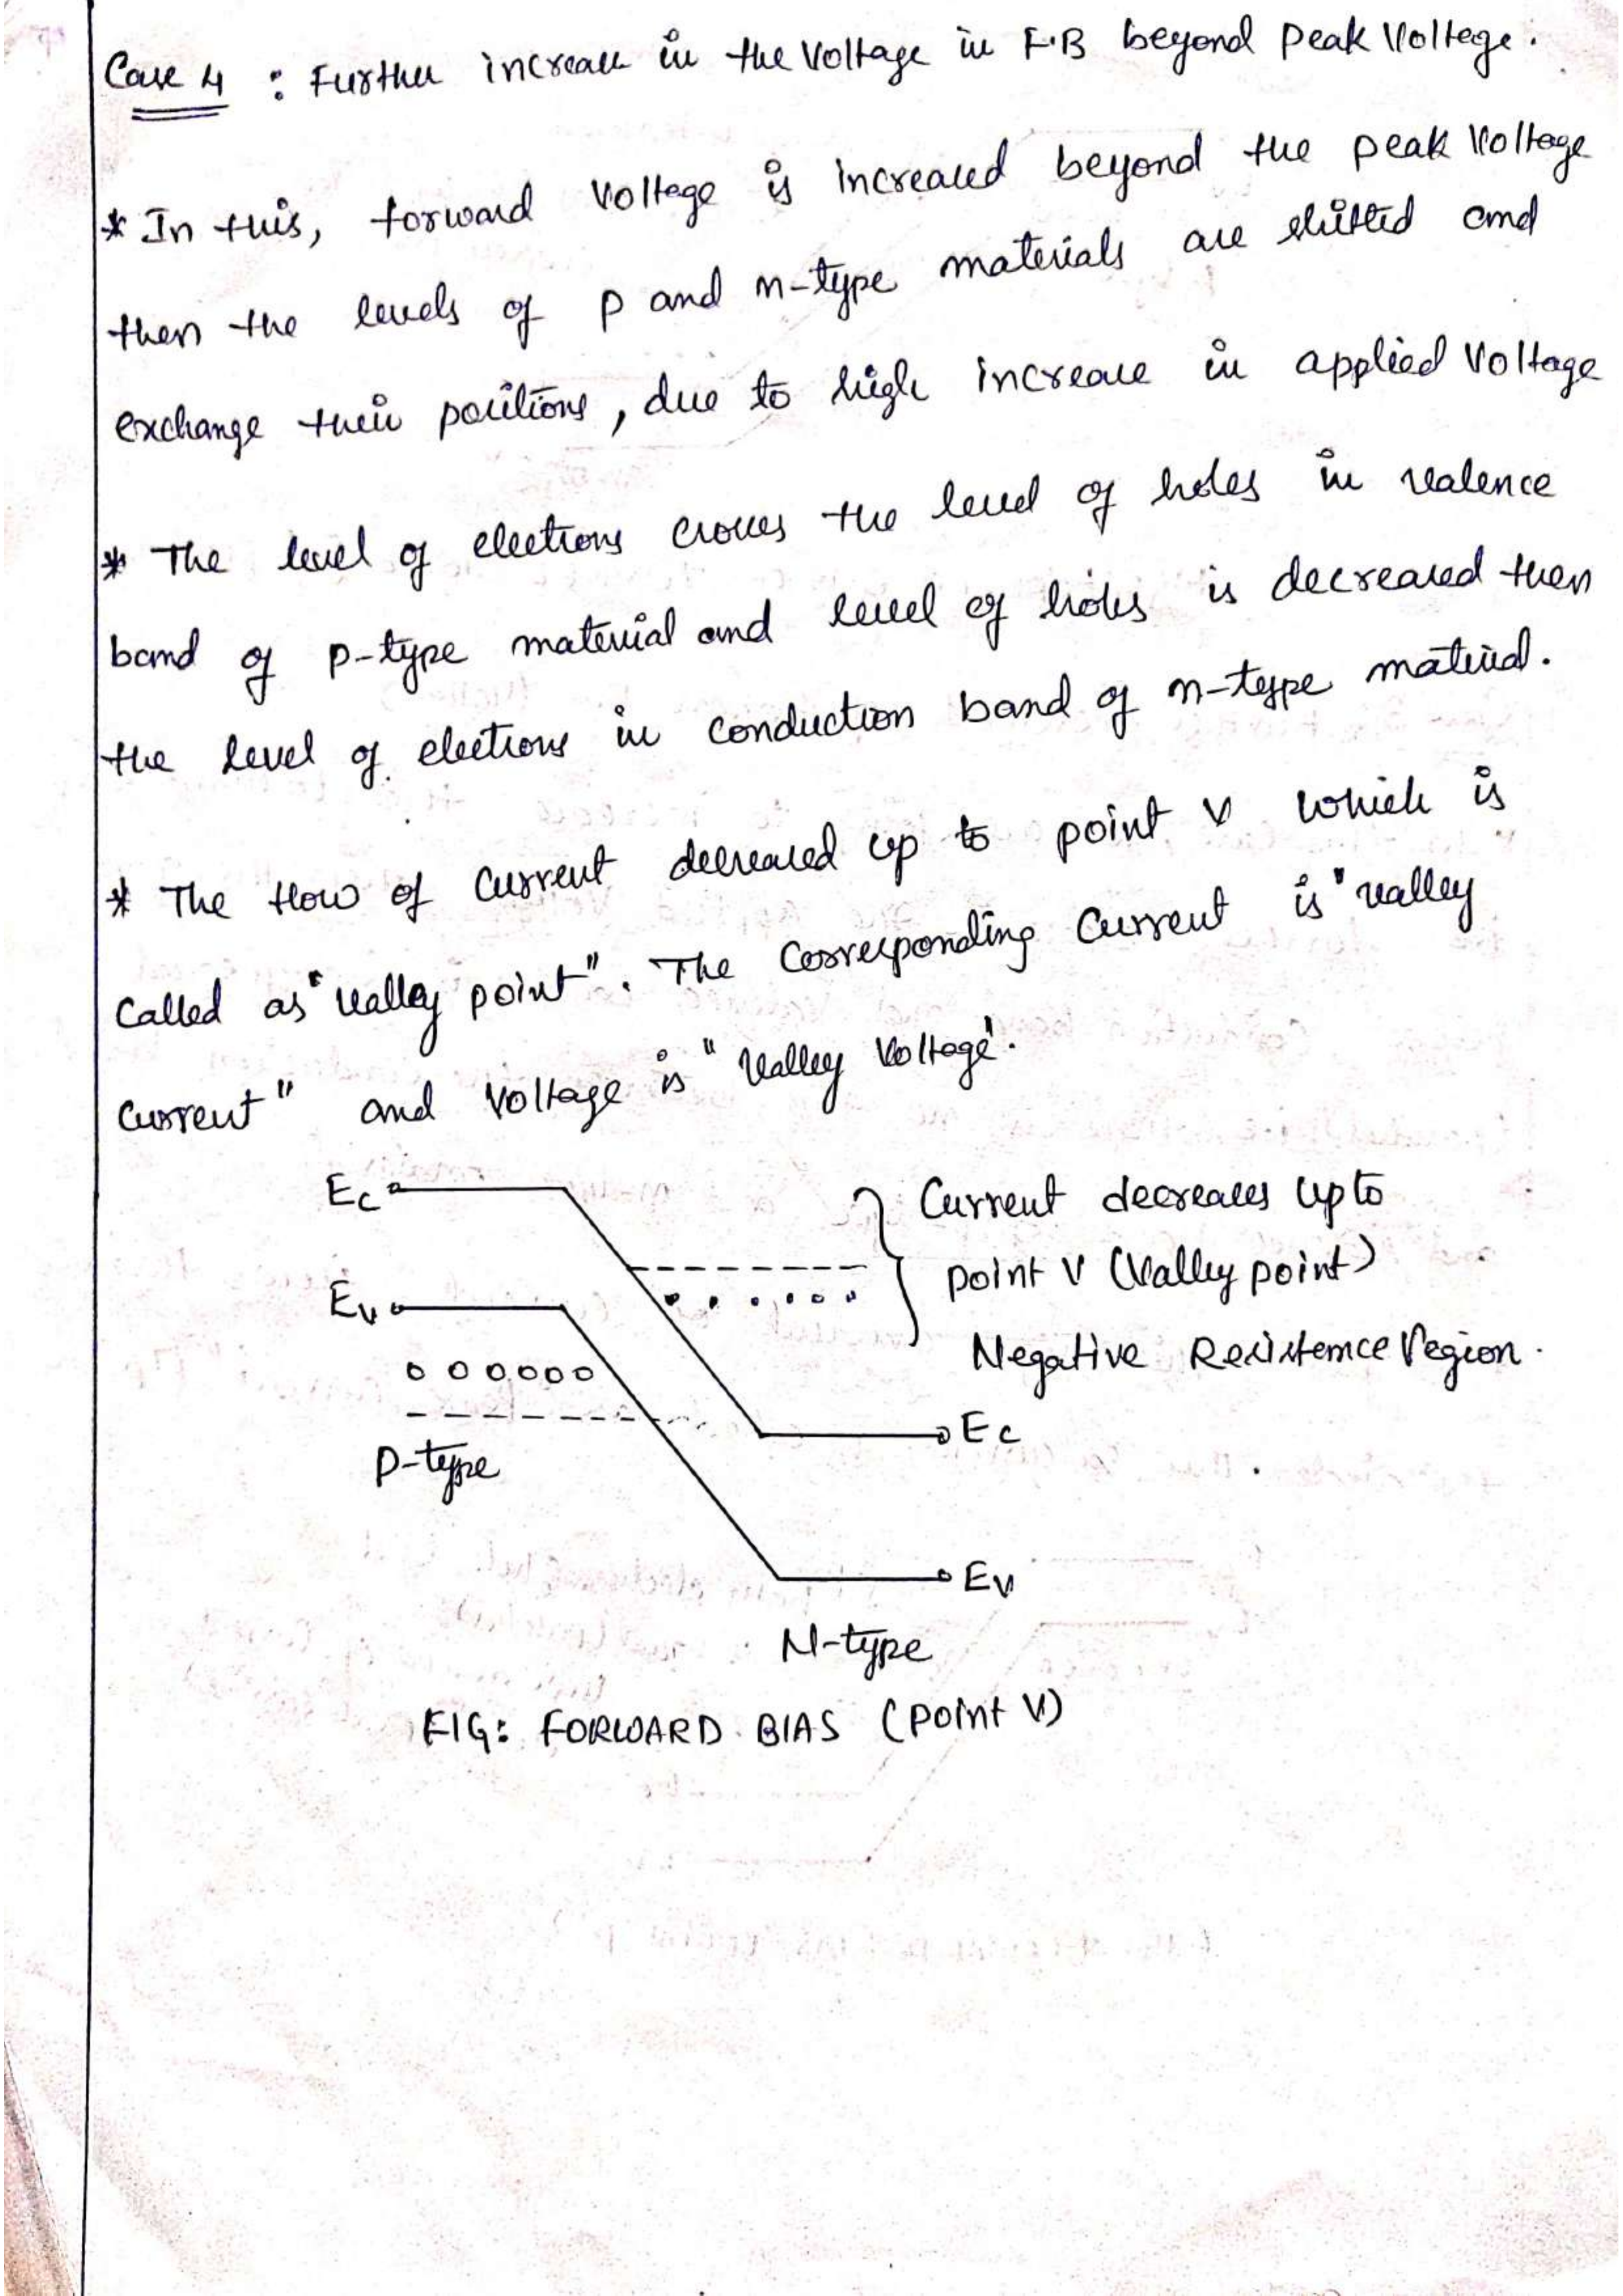 Case 4 : Further increase in the Voltage in F.B beyond Peak Voltege.
* In this, forward Voltage is increased beyond the peak Voltage
then the levels of p and n-type materials are shifted and
exchange their positions, due to high increase in applied Voltage
* The level of electrons crosses the level of holes in valence
band of p-type material and level of holes is decreased then
the level of electrons in conduction band of n-type material.
* The flow of current decreased up to point V which is
called as "valley point". The corresponding current is "valley
current" and voltage is "valley voltage".
Ec
Ev
Current decreases upto
point V (Valley point)
Negative Resistence Region.
Ec
P-type
Ev
N-type
FIG: FORWARD BIAS (Point V)